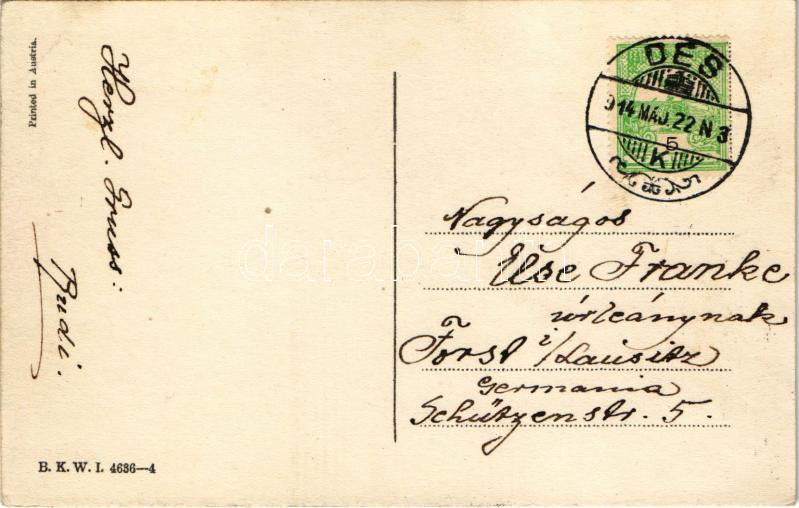 Printed in Austria.
Herzl. Gruss:
Rudi.
B. K. W. I. 4636—4
DÉS
914 MÁJ. 22 N 3
5
K
Nagyságos
Ilse Franke
úrleánynak
Forst i/Lausitz
Germania
Schützenstr. 5.
darabanth